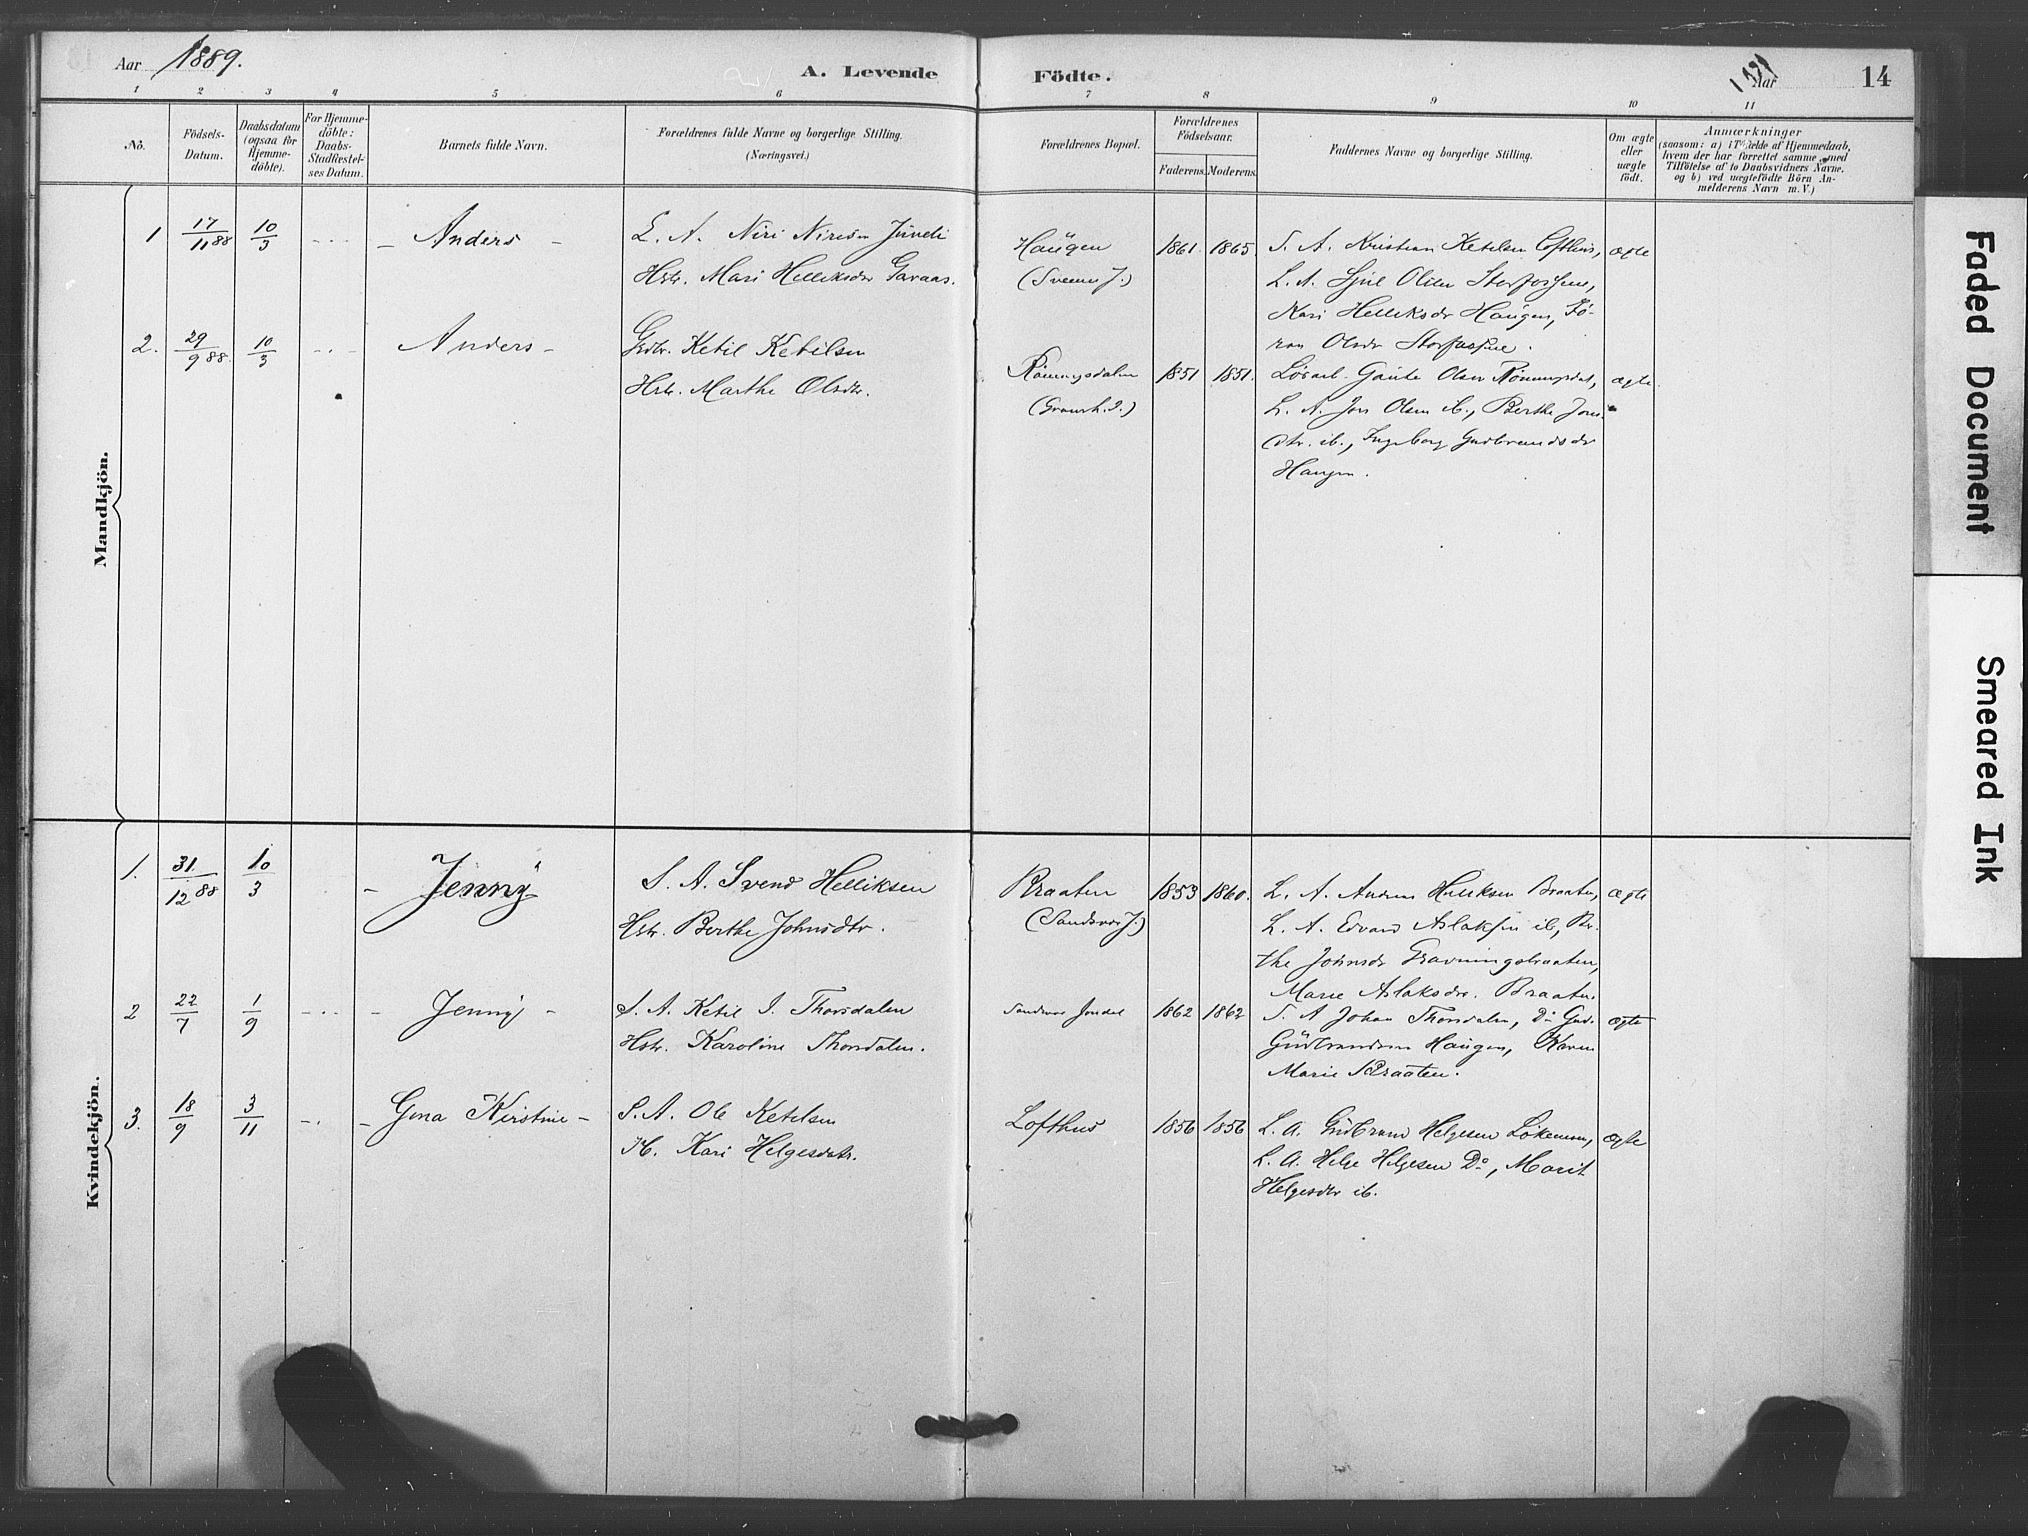 Aar 1889.
A. Levende Födte.
Aar
14
1 2 3 4 5 6 7 8 9 10 11
No.
Födsels-
Datum.
Daabsdatum
(ogsaa for
Hjemme-
döbte).
For Hjemme-
döbte:
Daabs-
Stadfæstel-
ses Datum.
Barnets fulde Navn.
Forældrenes fulde Navne og borgerlige Stilling.
(Næringsvei.)
Forældrenes Bopæl.
Forældrenes
Födselsaar.
Faderens. Moderens.
Faddernes Navne og borgerlige Stilling.
Om ægte
eller
uægte
födt.
Anmærkninger
(saasom: a) Tilfælde af Hjemmedaab,
hvem der har forrettet samme, med
Tilföielse af to Daabsvidners Navne.
og b) ved uægtefödte Börn An-
melderens Navn m. V.)
Mandkjön.
1 17/11 88 10/3 - Anders - L. A. Niri Nirisen Juveli
Hstr. Mari Helliksdtr Garaas.
Haugen
(Svenes J.)
1861. 1865.
S. A. Kristian Ketilsen Lofthus,
L. A. Sjul Olsen
Kari Helliksdr Haugen, Jø-
ran Olsdr
ægte
2. 29/9 88. 10/3 Anders - Ketil Ketilsen
Hstr. Marthe Olsdtr.
Rønningsdalen
1851 1851.
Gaute Olsen Rønningsdal,
L. A. Jon Olsen ib., Berthe Jons-
dtr. ib., Ingeborg Gudbrandsdr
Haugen.
ægte.
Kvindekjön.
1. 31/12 88 10/3 - Jenny S. A. Svend Helliksen
Hstr. Berthe Johnsdtr.
Braaten
(Sandsvær J.)
1853 1860.
L. A. Anders Helliksen Braaten,
L. A. Edvard Aslaksen ib., Ber-
the Johnsdr Gravningsbraaten,
Marie Aslaksdr. Braaten.
ægte
2 22/7 1/9 - Jenny - S. A. Ketil J. Thorsdalen
Hstr. Karoline Thorsdalen.
Sandsvær Jondal
1862 1862
S. A Johan Thorsdalen, Do Gud.
Gudbrandsen Haugen, Karen
Marie Braaten.
ægte
3. 18/9 3/11 - Gina Kirstine - S. A. Ole Ketilsen
H. Kari Helgesdatr.
Lofthus
1856 1856
L. A. Gudbrand Helgesen Løkemoen,
L. A. Helge Helgesen Do, Marit
Helgesdtr ib.
ægte
Faded Document
Smeared Ink